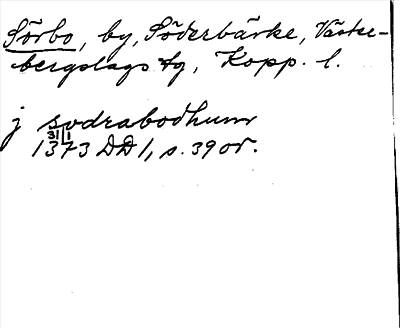 Sörbo, by, Söderbärke, Väster-
bergslags tg, Kopp. l.
j sodrabodhum
31/1
1373 DD 1, s. 39 or.